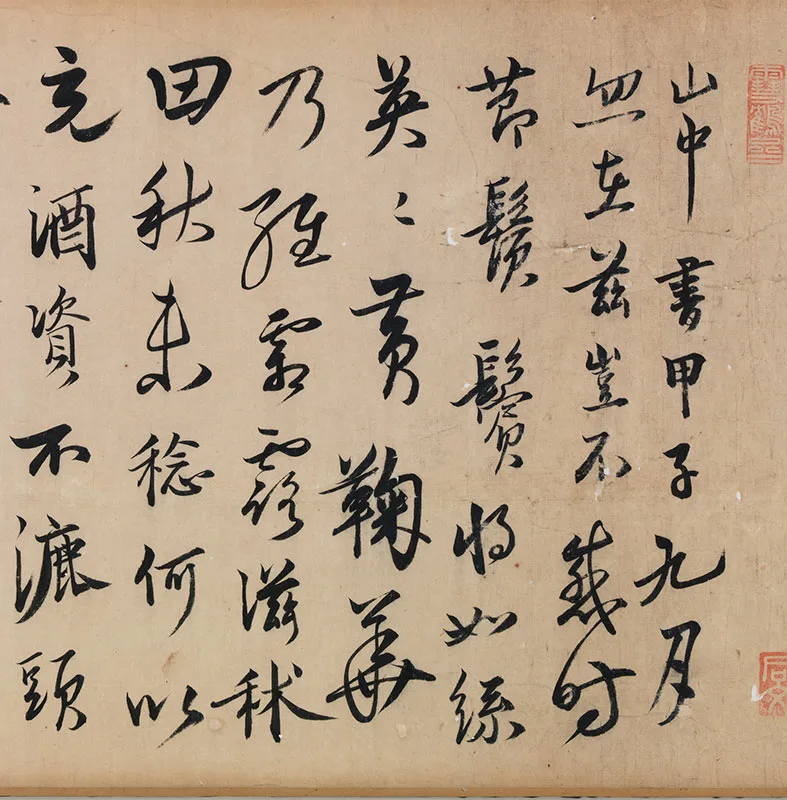 山中書甲子九月
忽在茲豈不感時
節鬚鬢將如絲
英〻黃鞠華
乃經霜露滋秫
田秋未稔何以
充酒資不漉頭